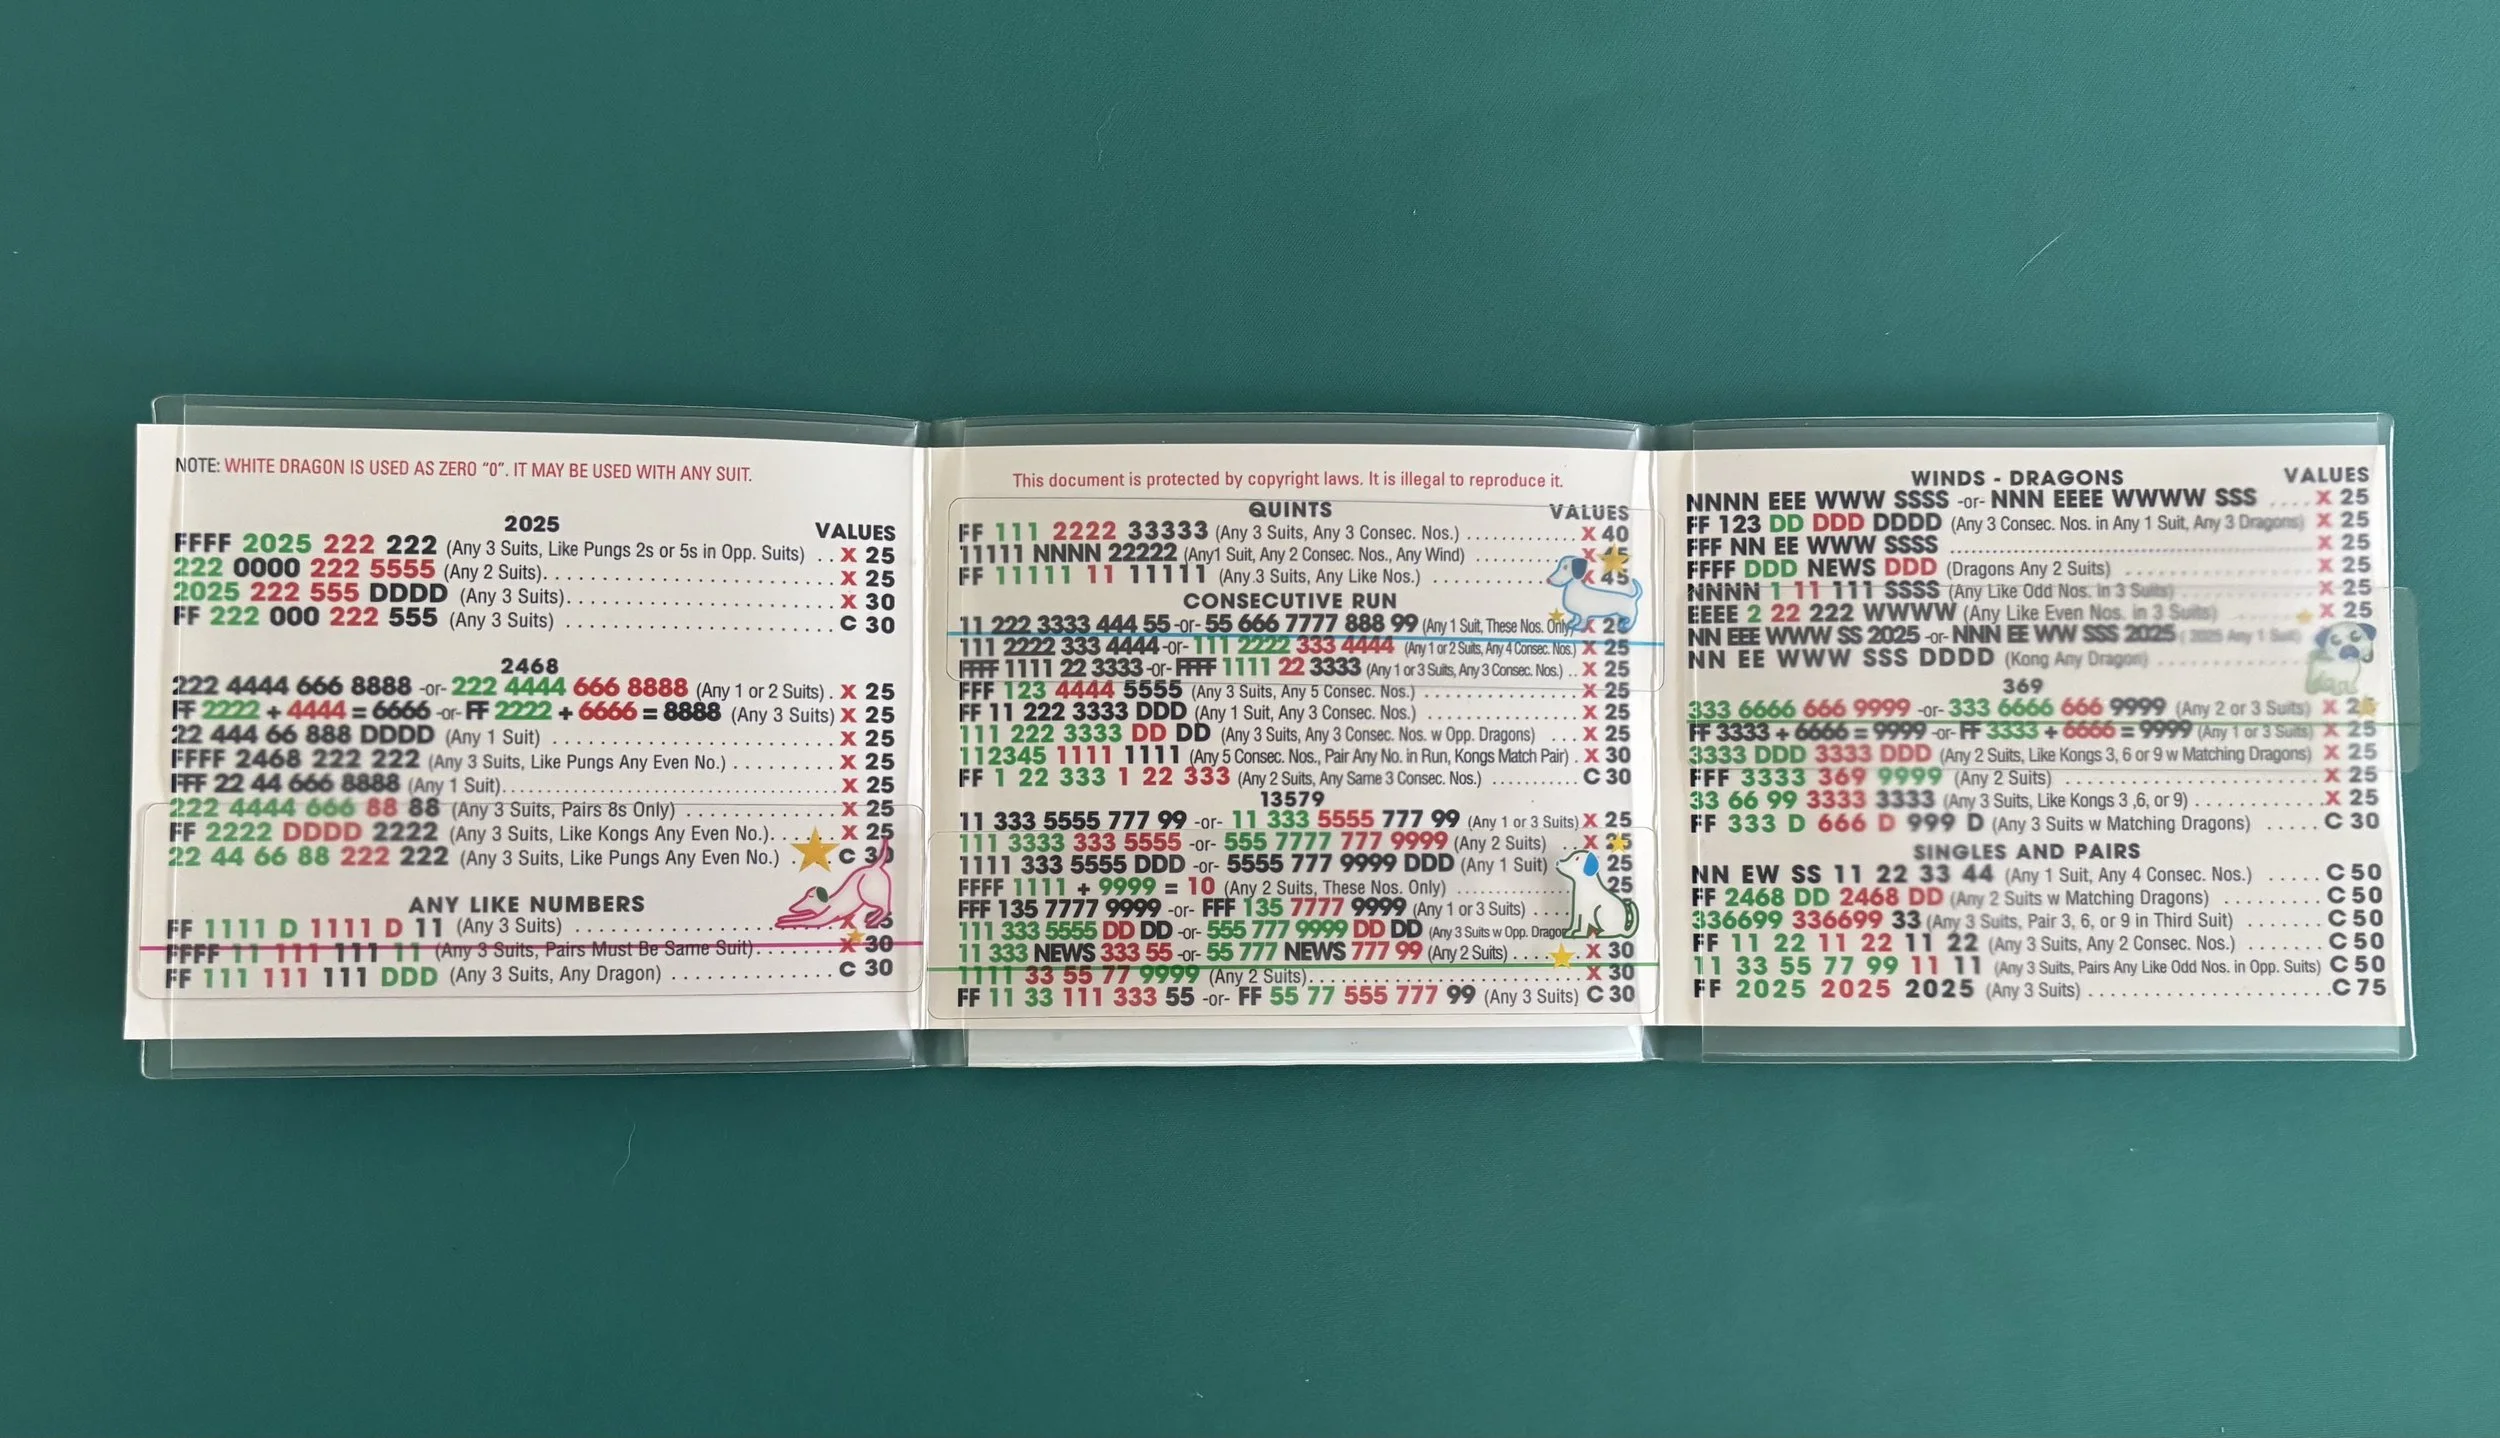 NOTE: WHITE DRAGON IS USED AS ZERO "0". IT MAY BE USED WITH ANY SUIT.
2025
VALUES
FFFF 2025 222 222 (Any 3 Suits, Like Pungs 2s or 5s in Opp. Suits) . . X 25
222 0000 222 5555 (Any 2 Suits). . . . . . . . . . . X 25
2025 222 555 DDDD (Any 3 Suits). . . . . . . . . . . X 30
FF 222 000 222 555 (Any 3 Suits) . . . . . . . . . . . C 30
2468
222 4444 666 8888 -or- 222 4444 666 8888 (Any 1 or 2 Suits) . X 25
FF 2222 + 4444 = 6666 -or- FF 2222 + 6666 = 8888 (Any 3 Suits) X 25
22 444 66 888 DDDD (Any 1 Suit) . . . . . . . . . . . X 25
FFFF 2468 222 222 (Any 3 Suits, Like Pungs Any Even No.) . . . . . . . X 25
FFF 22 44 666 8888 (Any 1 Suit). . . . . . . . . . . X 25
222 4444 666 88 88 (Any 3 Suits, Pairs 8s Only) . . . . . . . . . . . X 25
FF 2222 DDDD 2222 (Any 3 Suits, Like Kongs Any Even No.). . . . . X 25
22 44 66 88 222 222 (Any 3 Suits, Like Pungs Any Even No.) . C 30
ANY LIKE NUMBERS
FF 1111 D 1111 D 11 (Any 3 Suits) . . . . . . . . . . . X 25
FFFF 11 111 111 11 (Any 3 Suits, Pairs Must Be Same Suit). . . . . . X 30
FF 111 111 111 DDD (Any 3 Suits, Any Dragon) . . . . . . . . . . . C 30
This document is protected by copyright laws. It is illegal to reproduce it.
QUINTS
VALUES
FF 111 2222 33333 (Any 3 Suits, Any 3 Consec. Nos.) . . . . . . . . . . . X 40
11111 NNNN 22222 (Any1 Suit, Any 2 Consec. Nos., Any Wind) X
FF 11111 11 11111 (Any 3 Suits, Any Like Nos.) . . . . . . . . . . . X 45
CONSECUTIVE RUN
11 222 3333 444 55 -or- 55 666 7777 888 99 (Any 1 Suit, These Nos. Only) X
111 2222 333 4444 -or- 111 2222 333 4444 (Any 1 or 2 Suits, Any 4 Consec. Nos.) X 25
FFFF 1111 22 3333 -or- FFFF 1111 22 3333 (Any 1 or 3 Suits, Any 3 Consec. Nos.) . . X 25
FFF 123 4444 5555 (Any 3 Suits, Any 5 Consec. Nos.) . . . . . . . . . . . X 25
FF 11 222 3333 DDD (Any 1 Suit, Any 3 Consec. Nos.) . . . . . . . . . . . X 25
111 222 3333 DD DD (Any 3 Suits, Any 3 Consec. Nos. w Opp. Dragons) . . . X 25
112345 1111 1111 (Any 5 Consec. Nos., Pair Any No. in Run, Kongs Match Pair) . X 30
FF 1 22 333 1 22 333 (Any 2 Suits, Any Same 3 Consec. Nos.) . . . . . . . . C 30
13579
11 333 5555 777 99 -or- 11 333 5555 777 99 (Any 1 or 3 Suits) X 25
111 3333 333 5555 -or- 555 7777 777 9999 (Any 2 Suits) . . X 25
1111 333 5555 DDD -or- 5555 777 9999 DDD (Any 1 Suit) 25
FFFF 1111 + 9999 = 10 (Any 2 Suits, These Nos. Only) . . . . . . . . . . . 25
FFF 135 7777 9999 -or- FFF 135 7777 9999 (Any 1 or 3 Suits) . . . .
111 333 5555 DD DD -or- 555 777 9999 DD DD (Any 3 Suits w Opp. Dragon
11 333 NEWS 333 55 -or- 55 777 NEWS 777 99 (Any 2 Suits) . . . . X 30
1111 33 55 77 9999 (Any 2 Suits). . . . . . . . . . . X 30
FF 11 33 111 333 55 -or- FF 55 77 555 777 99 (Any 3 Suits) C 30
WINDS - DRAGONS
VALUES
NNNN EEE WWW SSSS -or- NNN EEEE WWWW SSS . . . . X 25
FF 123 DD DDD DDDD (Any 3 Consec. Nos. in Any 1 Suit, Any 3 Dragons) X 25
FFF NN EE WWW SSSS . . . . . . . . . . . X 25
FFFF DDD NEWS DDD (Dragons Any 2 Suits) . . . . . . . . . . . X 25
NNNN 1 11 111 SSSS (Any Like Odd Nos. in 3 Suits) X 25
EEEE 2 22 222 WWWW (Any Like Even Nos. in 3 Suits) X 25
NN EEE WWW SS 2025 -or- NNN EE WW SSS 2025 (2025 Any 1 Suit)
NN EE WWW SSS DDDD (Kong Any Dragon) . . . . . . . . . . .
369
333 6666 666 9999 -or- 333 6666 666 9999 (Any 2 or 3 Suits) X
FF 3333 + 6666 = 9999 -or- FF 3333 + 6666 = 9999 (Any 1 or 3 Suits) X 25
3333 DDD 3333 DDD (Any 2 Suits, Like Kongs 3, 6 or 9 w Matching Dragons) X 25
FFF 3333 369 9999 (Any 2 Suits) . . . . . . . . . . . X 25
33 66 99 3333 3333 (Any 3 Suits, Like Kongs 3 ,6, or 9) . . . . . . . . . . . X 25
FF 333 D 666 D 999 D (Any 3 Suits w Matching Dragons) . . . . . C 30
SINGLES AND PAIRS
NN EW SS 11 22 33 44 (Any 1 Suit, Any 4 Consec. Nos.) . . . . . C 50
FF 2468 DD 2468 DD (Any 2 Suits w Matching Dragons) . . . . . . . . C 50
336699 336699 33 (Any 3 Suits, Pair 3, 6, or 9 in Third Suit) . . . . . . C 50
FF 11 22 11 22 11 22 (Any 3 Suits, Any 2 Consec. Nos.) . . . . . . . C 50
11 33 55 77 99 11 11 (Any 3 Suits, Pairs Any Like Odd Nos. in Opp. Suits) C 50
FF 2025 2025 2025 (Any 3 Suits) . . . . . . . . . . . C 75